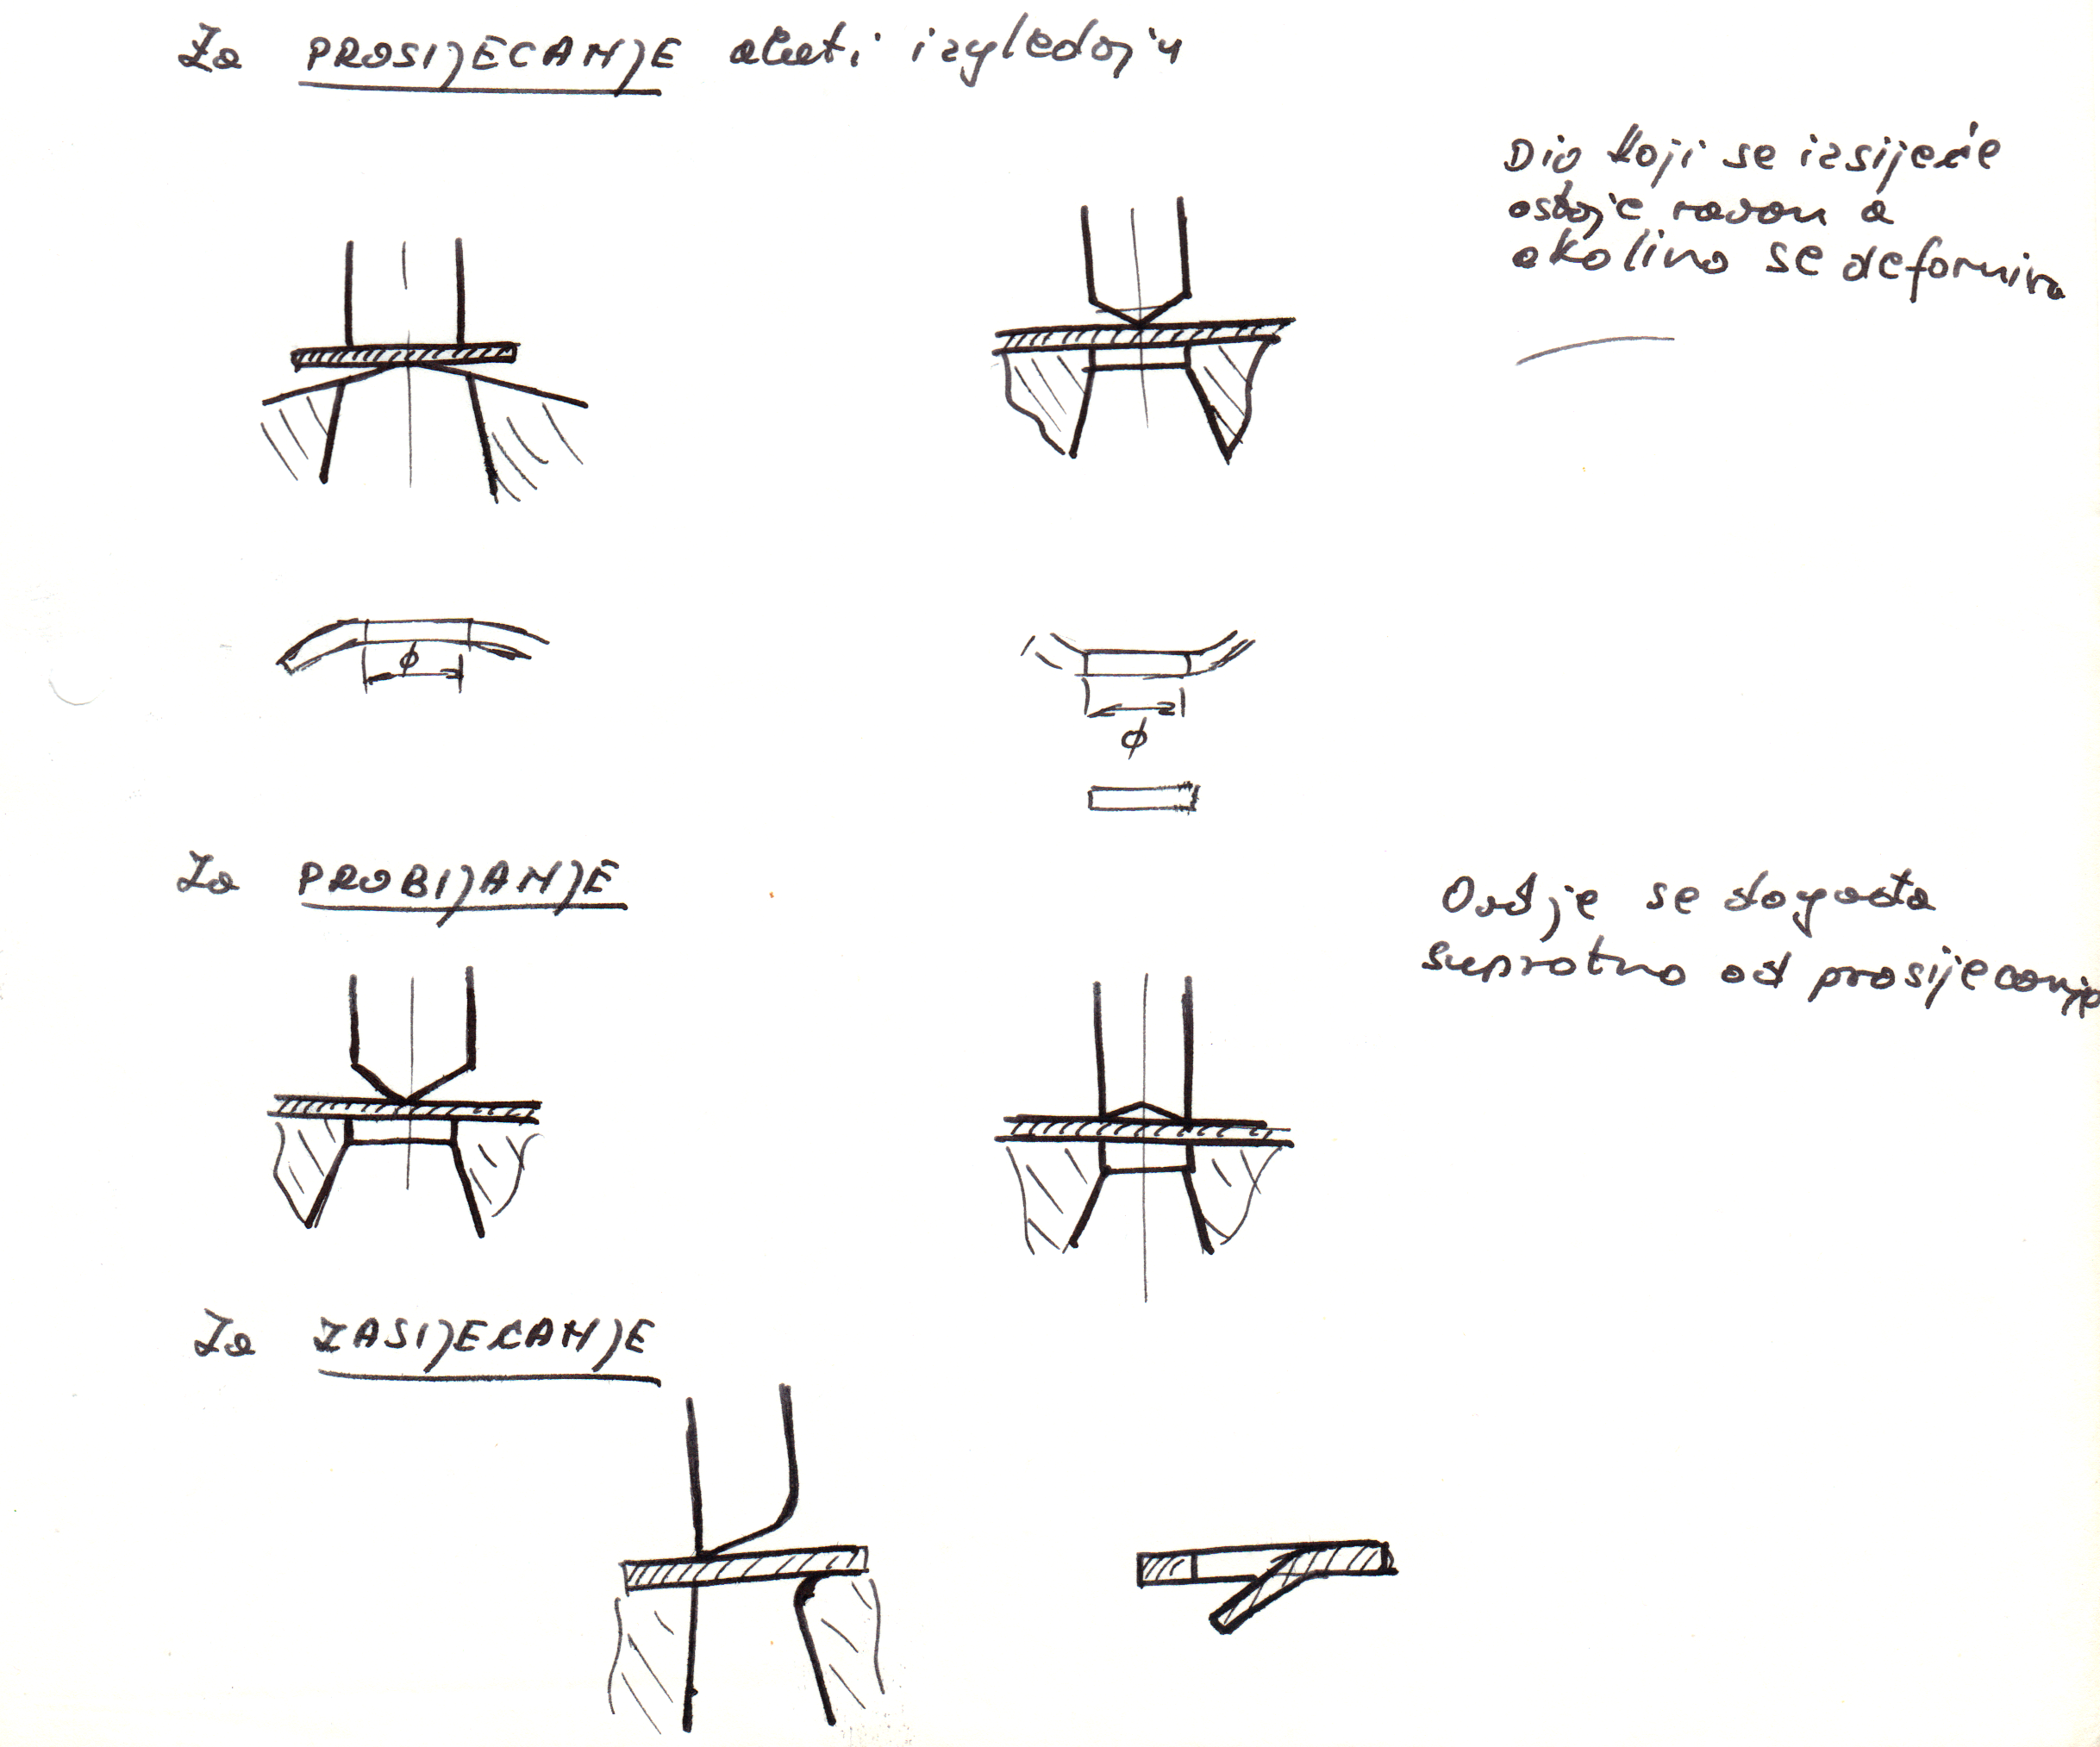 Za PROSIJECANJE alati izgledaju
Dio koji se izsiječe
ostaje ravan a
okolina se deformira
ϕ
ϕ
Za PROBIJANJE
Ovdje se događa
suprotno od prosijecanja
Za ZASIJECANJE